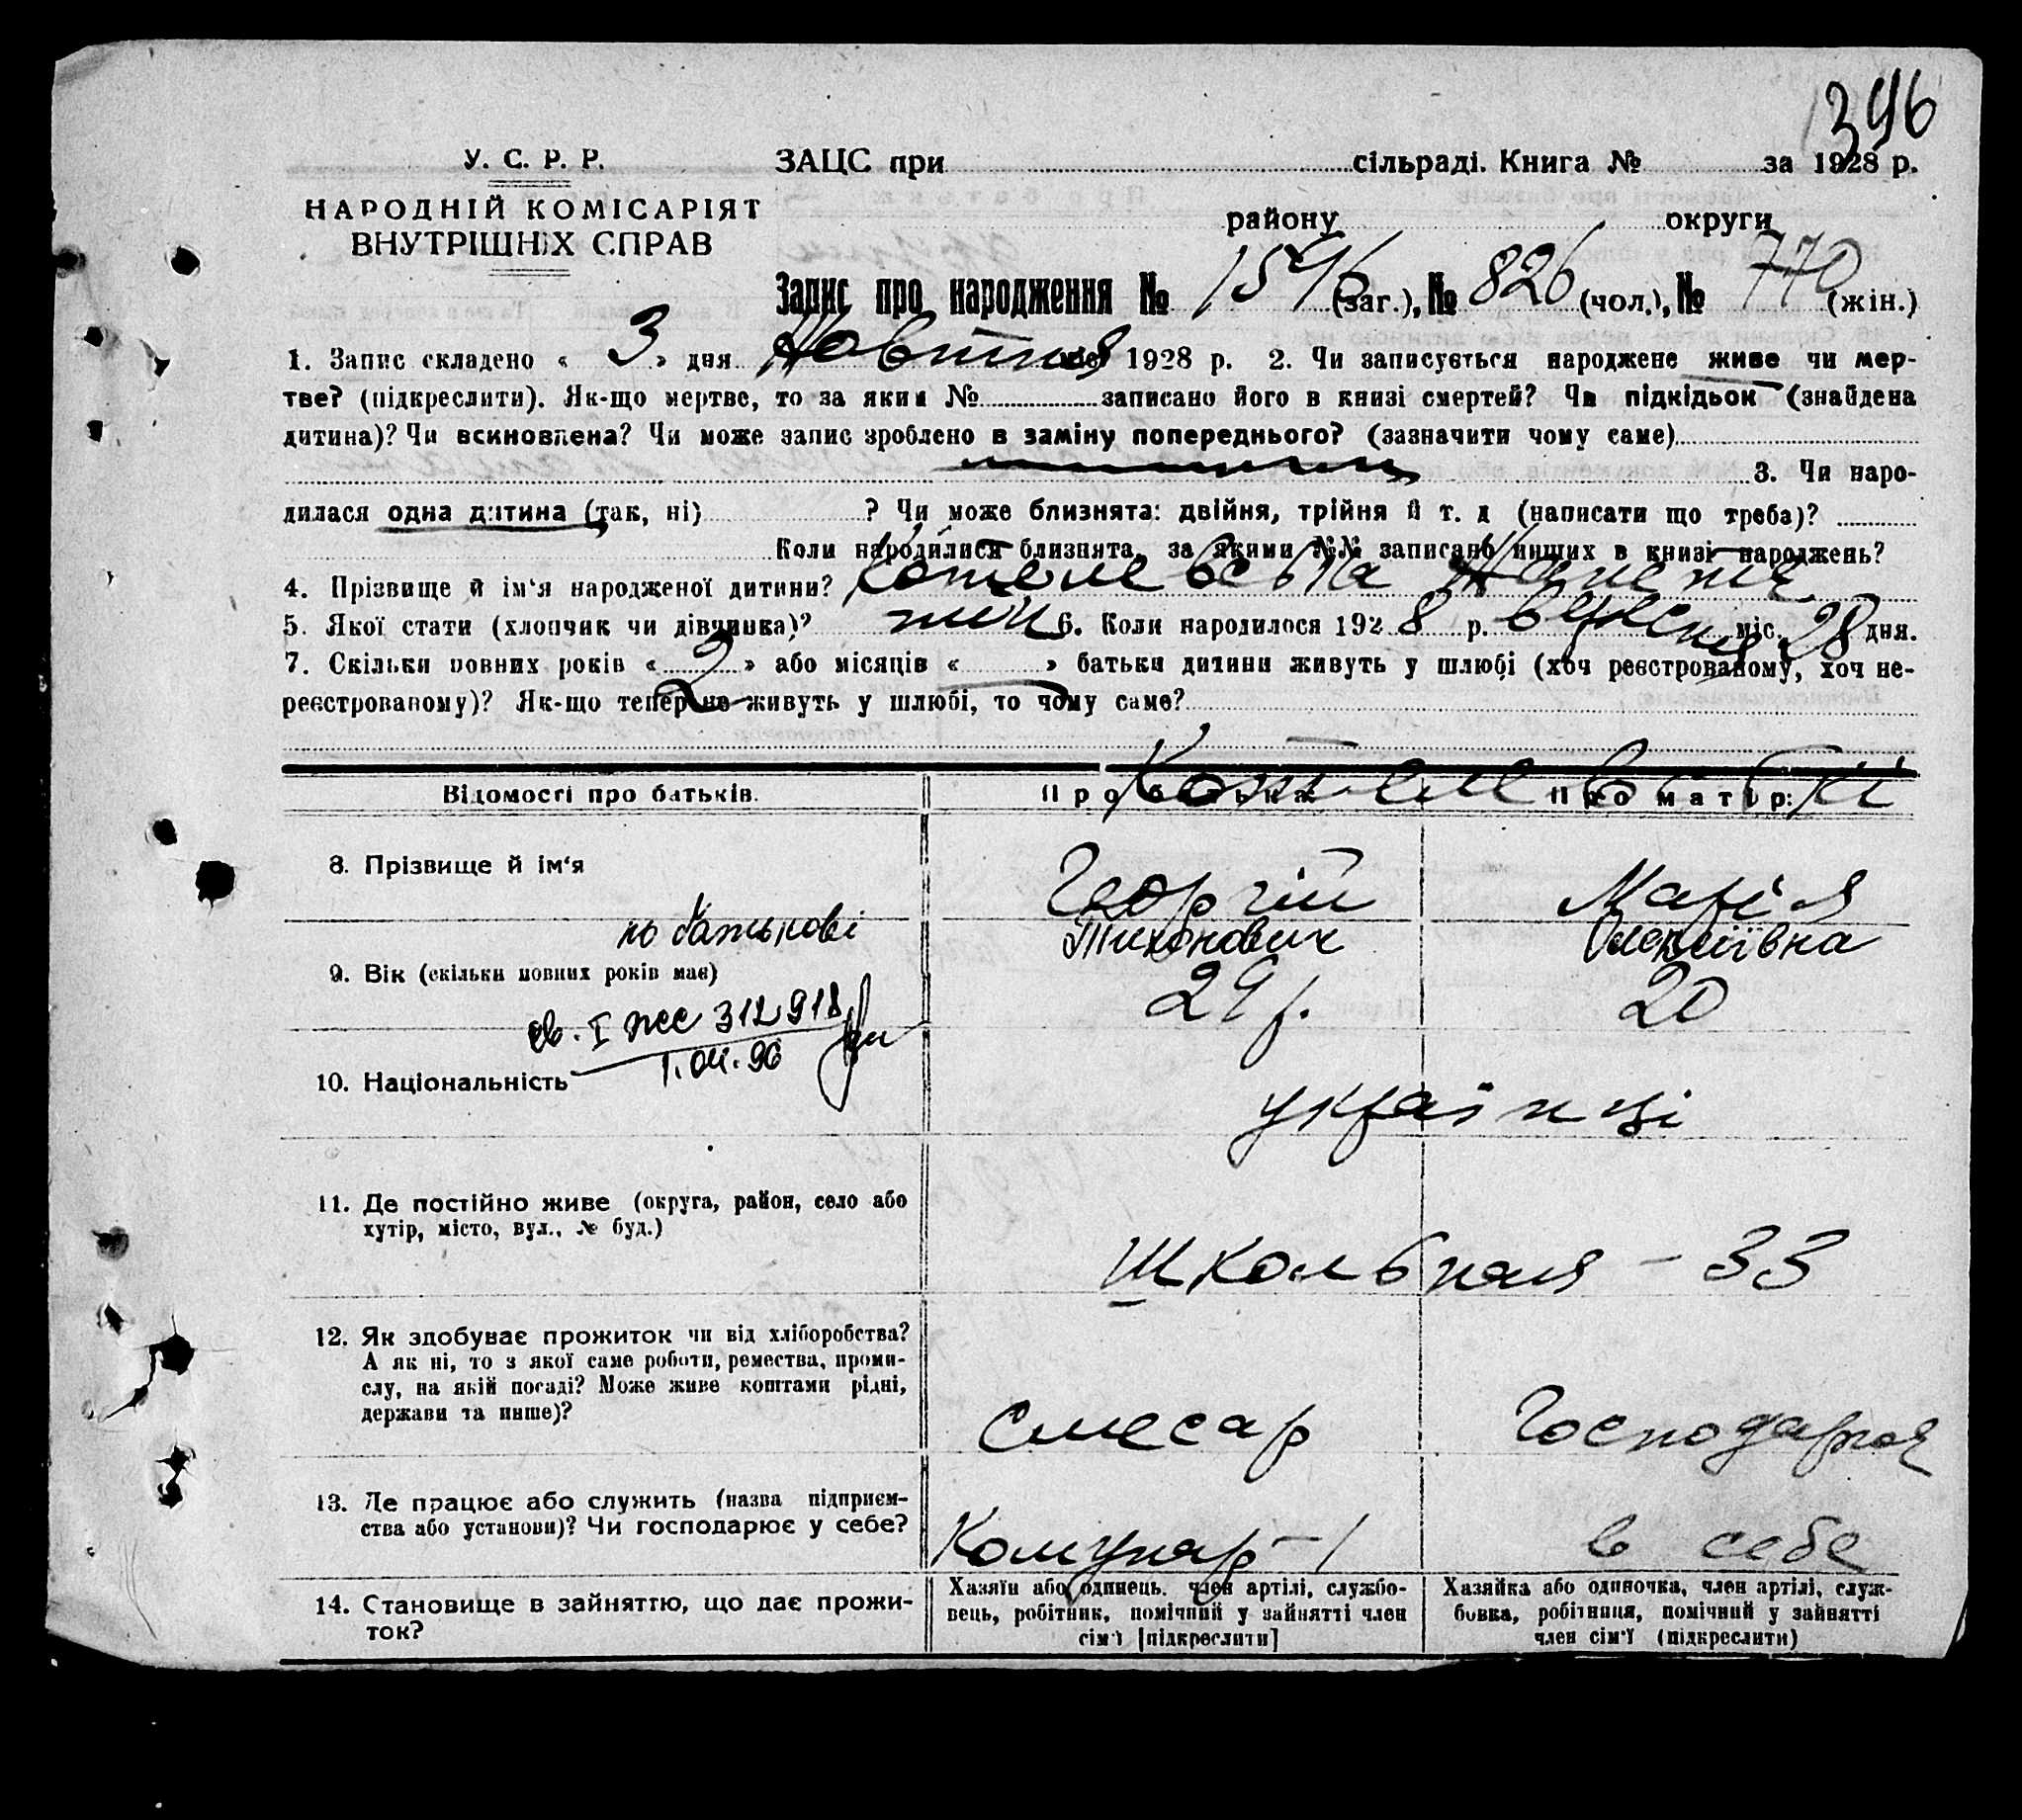 396
У. С. Р. Р.
НАРОДНІЙ КОМІСАРІЯТ
ВНУТРІШНІХ СПРАВ
ЗАЦС при сільраді. Книга № за 1928 р.
району округи
Запис про народження № 1596 (заг.), № 826 (чол.), № 770 (жін.)
1. Запис складено « 3 » дня Жовтня міс. 1928 р. 2. Чи записується народжене живе чи мер-
тве? (підкреслити). Як-що мертве, то за яким № записано його в книзі смертей? Чи підкідьок (знайдена
дитина)? Чи всиновлена? Чи може запис зроблено в заміну попереднього? (зазначити чому саме)
3. Чи наро-
дилася одна дитина (так, ні) ? Чи може близнята: двійня, трійня й т. д (написати що треба)?
Коли народилися близнята, за якими №№ записано инших в книзі народжень?
4. Прізвище й ім'я народженої дитини? Котелевська
5. Якої стати (хлопчик чи дівчинка)? жін 6. Коли народилося 1928 р. вересня міс. 28 дня.
7. Скільки повних років « 2 » або місяців « » батьки дитини живуть у шлюбі (хоч реєстрованому, хоч не-
реєстрованому)? Як-що тепер не живуть у шлюбі, то чому саме?
Котелевські
Відомості про батьків. Про батька Про матір:
8. Прізвище й ім'я Георгій Марія
по батькові Тихонович Олексіївна
9. Вік (скільки повних років має) 29 р. 20
св. І ЖС 312918
1.04.96
10. Національність українці
11. Де постійно живе (округа, район, село або
хутір, місто, вул., № буд.)
Школьная - 33
12. Як здобуває прожиток чи від хліборобства?
А як ні, то з якої саме роботи, ремества, проми-
слу, на якій посаді? Може живе коштами рідні,
держави та инше)?
Слесар Господарка
13. Де працює або служить (назва підприєм-
ства або установи)? Чи господарює у себе?
Комунар - 1 в себе
14. Становище в зайняттю, що дає прожи-
ток?
Хазяїн або одинець, член артілі, службо-
вець, робітник, помічний у зайнятті член
сім'ї [підкреслити]
Хазяйка або одиночка, член артілі, служ-
бовка, робітниця, помічний у зайнятті
член сім'ї (підкреслити)